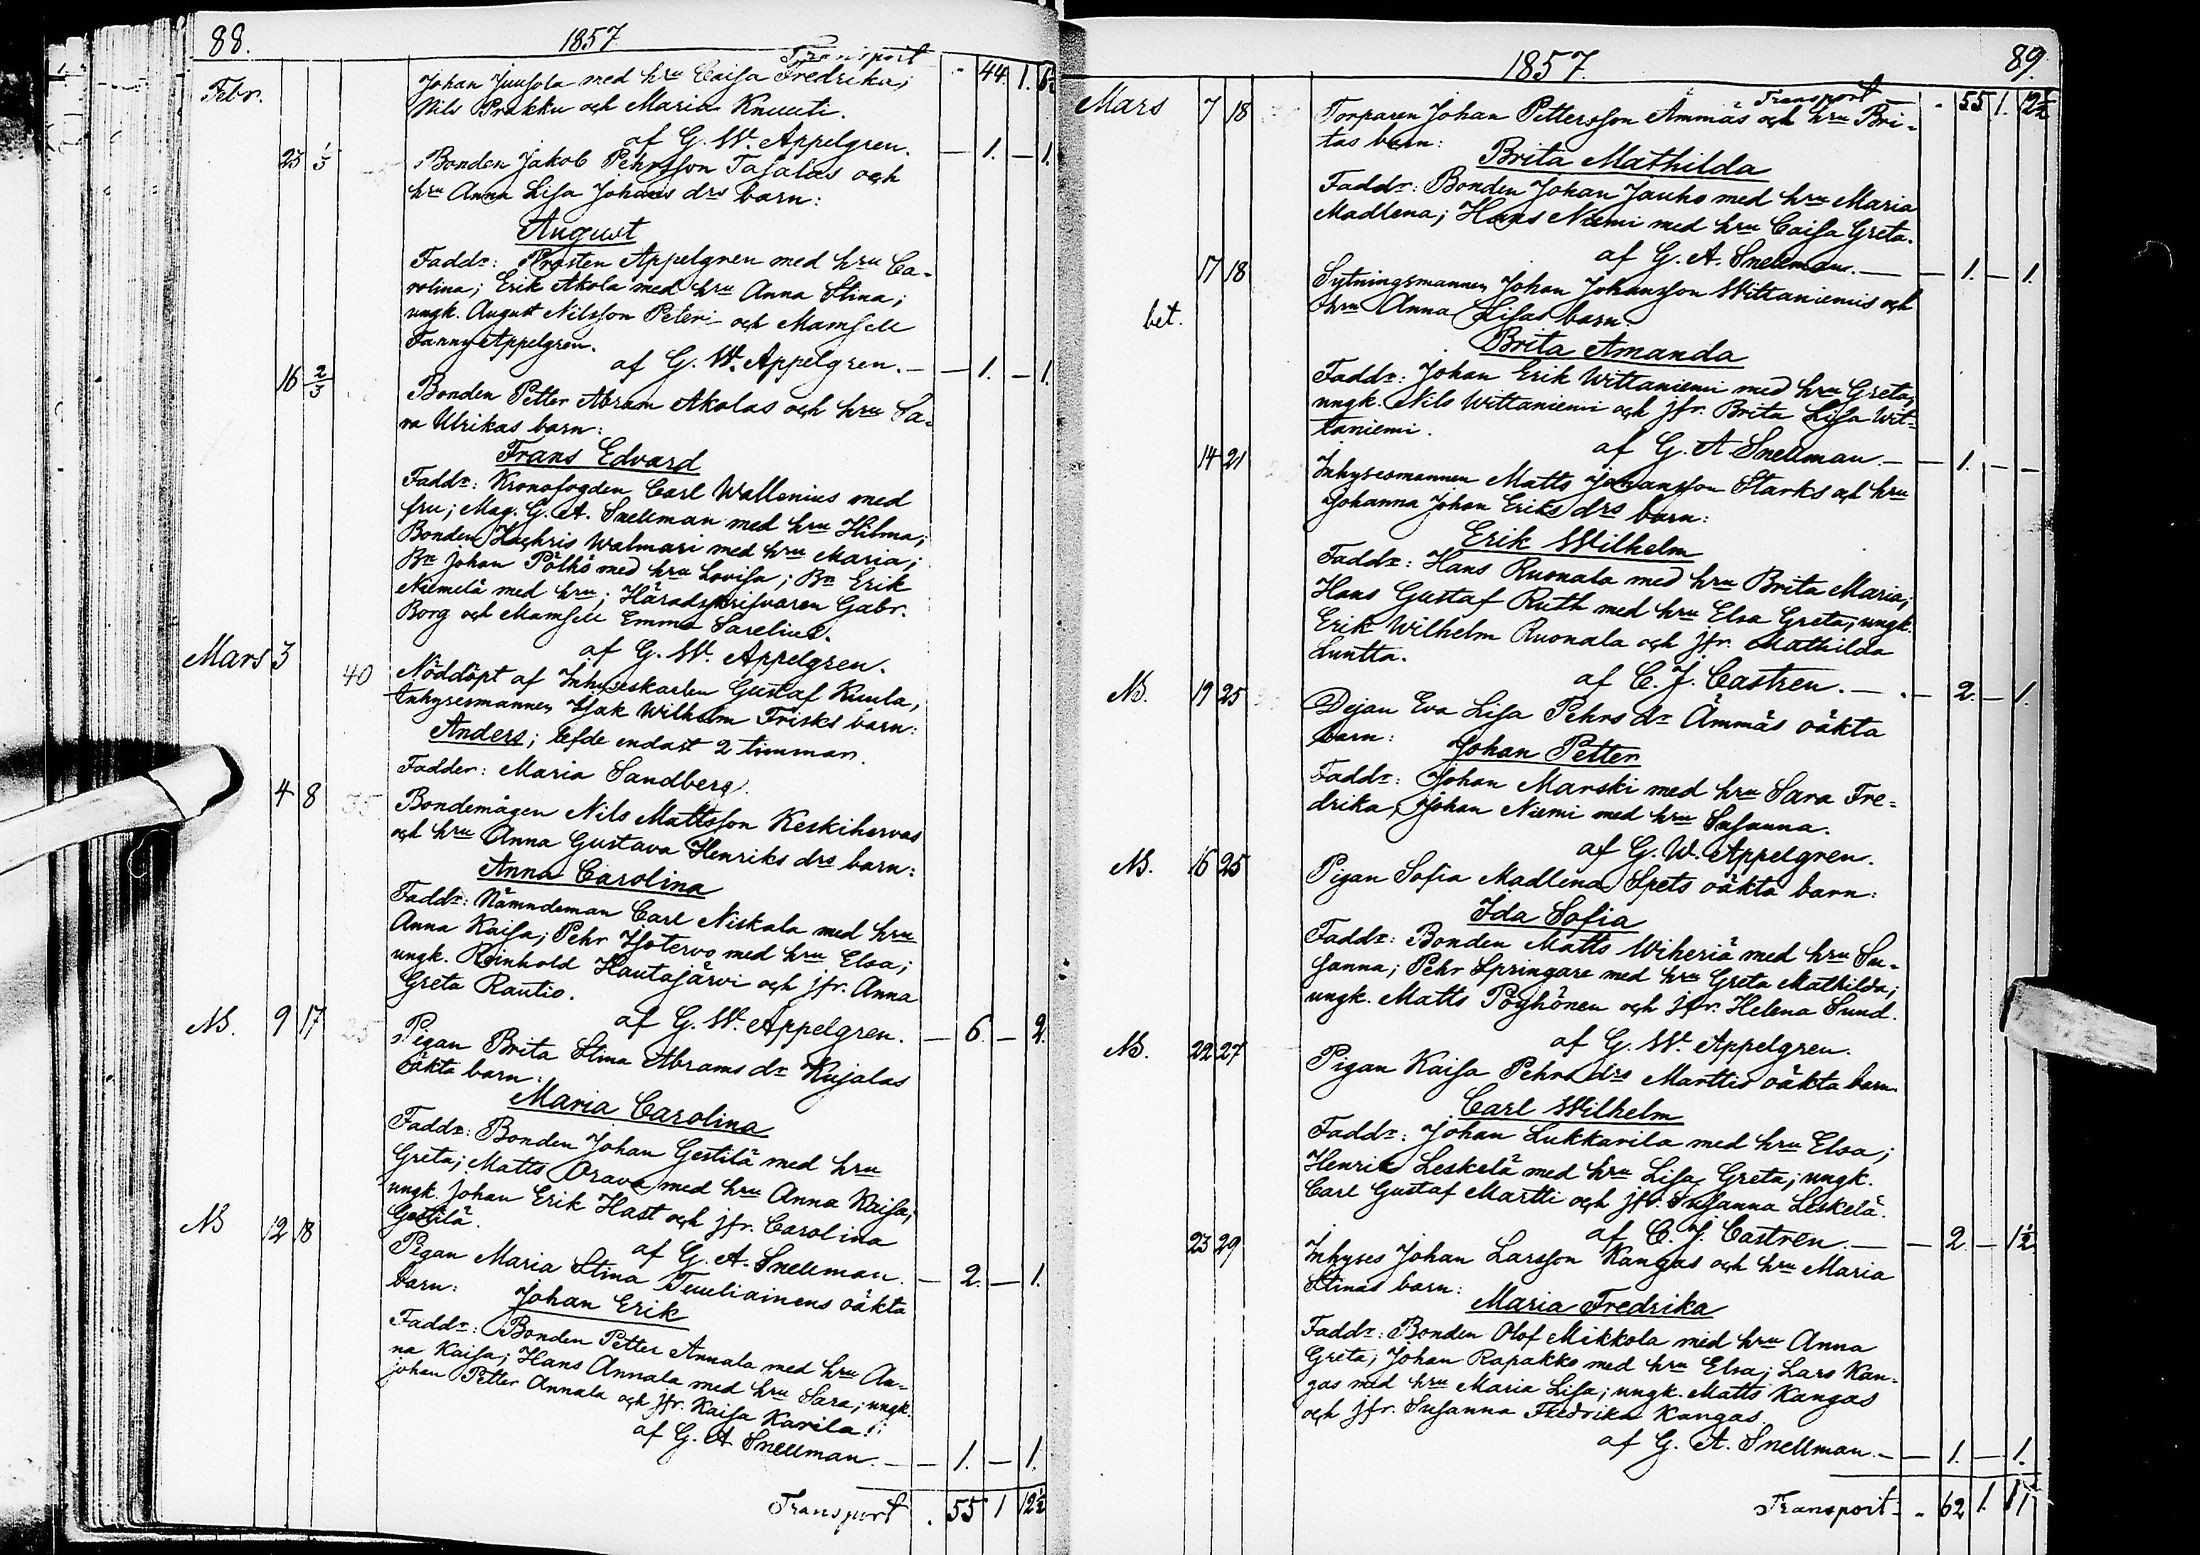 88.
1857
Transport - 44 1. 6½
Febr. Johan Juusola med hru Caisa Fredrika;
Nils Prakku och Maria Knuuti.
af G. W. Appelgren. — 1. — 1.
25 1/3 Bonden Jakob Pehrsson Tasalas och
hru Anna Lisa Johans drs barn:
August
Faddr: Prosten Appelgren med hru Ca-
rolina; Erik Akola med hru Anna Stina;
ungk. August Nilsson Peteri och Mamsell
Fanny Appelgren.
af G. W. Appelgren. — — 1. — 1.
16 2/3 Bonden Petter Abram Akolas och hru Sa-
ra Ulrikas barn:
Frans Edvard
Faddr: Kronofogden Carl Wallenius med
fru; Mag. G. A. Snellman med hru Hilma;
Bonden Zachris Walmari med hru Maria;
Bn Johan Pölhö med hru Lovisa; Bn Erik
Niemelä med hru; Häradsskrifvaren Gabr.
Borg och Mamsell Emma Sarelius.
af G. W. Appelgren.
Mars 3 40 Nöddöpt af Inhyseskarlen Gustaf Kuula,
Inhysesmannen Isak Wilhelm Frisks barn:
Anders; lefde endast 2 timmar.
Fadder: Maria Sandberg.
4 8 35 Bondemågen Nils Mattsson Keskihervas
och hru Anna Gustava Henriks drs barn:
Anna Carolina
Faddr: Nämndeman Carl Niskala med hru
Anna Kaisa; Pehr Isotervo med hru Elsa;
ungk. Reinhold Hautajärvi och jfr. Anna
Greta Rautio.
af G. W. Appelgren. — 6. — 2.
NB. 9 17 25 Pigan Brita Stina Abrams dr Kujalas
oäkta barn:
Maria Carolina
Faddr: Bonden Johan Gestilä med hru
Greta; Matts Orava med hru Anna Kaisa;
ungk. Johan Erik Hast och jfr. Carolina
Gestilä.
af G. A. Snellman. — 2. — 1.
NB 12 18 Pigan Maria Stina Tuuliainens oäkta
barn:
Johan Erik
Faddr: Bonden Petter Annala med hru An-
na Kaisa; Hans Annala med hru Sara; ungk.
Johan Petter Annala och jfr. Kaisa Karila.
af G. A Snellman. — — 1. — 1.
Transport . 55 1 12½
1857.
89.
Transport - 55 1. 12½
Mars 7 18 Torparen Johan Pettersson Ämmäs och hru Bri-
tas barn:
Brita Mathilda
Faddr: Bonden Johan Jauho med hru Maria
Madlena; Hans Niemi med hru Caisa Greta.
af G. A. Snellman. — — 1. — 1.
17 18 Sytningsmannen Johan Johansson Wittaniemis och
bet. hru Anna Lisas barn:
Brita Amanda
Faddr: Johan Erik Wittaniemi med hru Greta;
ungk. Nils Wittaniemi och jfr. Brita Lisa Wit-
taniemi.
af G. A Snellman. — — 1. — —
14 21 Inhysesmannen Matts Johansson Starks och hru
Johanna Johan Eriks drs barn:
Erik Wilhelm
Faddr: Hans Ruonala med hru Brita Maria;
Hans Gustaf Ruth med hru Elsa Greta; ungk.
Erik Wilhelm Ruonala och jfr. Mathilda
Luntta.
af C. J. Castren. — - 2. — 1.
NB. 19 25 Dejan Eva Lisa Pehrs dr Ämmäs oäkta
barn:
Johan Petter
Faddr: Johan Marski med hru Sara Fre-
drika, Johan Niemi med hru Susanna.
af G. W. Appelgren.
NB. 16 25 Pigan Sofia Madlena Spets oäkta barn:
Ida Sofia
Faddr: Bonden Matts Wiheriä med hru Su-
sanna; Pehr Springare med hru Greta Mathilda;
ungk. Matts Pöyhönen och jfr. Helena Sund.
af G. W. Appelgren.
NB. 22 27 Pigan Kaisa Pehrs drs Marttis oäkta barn.
Carl Wilhelm
Faddr: Johan Lukkarila med hru Elsa;
Henrik Leskelä med hru Lisa Greta; ungk.
Carl Gustaf Martti och jfr. Susanna Leskelä.
af C. J. Castren. — — 2 — 1½
23 29 Inhyses Johan Larsson Kangas och hru Maria
Stinas barn:
Maria Fredrika
Faddr: Bonden Olof Mikkola med hru Anna
Greta; Johan Rapakko med hru Elsa; Lars Kan-
gas med hru Maria Lisa; ungk. Matts Kangas
och jfr. Susanna Fredrika Kangas.
af G. A. Snellman. — — 1. — 1.
Transport - 62 1.